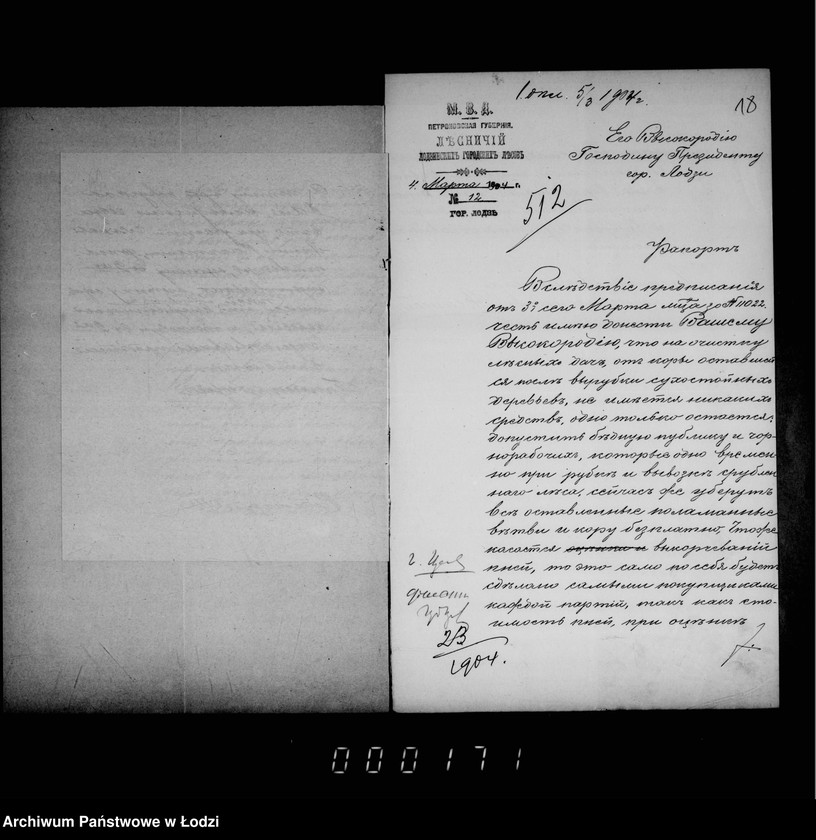 5/3 1904 г.
18
М. В. Д.
ПЕТРОКОВСКАЯ ГУБЕРНІЯ.
ЛѢСНИЧІЙ
ЛОДЗИНСКИХЪ ГОРОДСКИХЪ ЛѢСОВЪ
4. Марта 1904 г.
№ 12
ГОР. ЛОДЗЬ
512
Его Высокородію
Господину Президенту
гор. Лодзи
Рапортъ
Вслѣдствіе предписанія
отъ 3го сего Марта мца за № 11022
честь имѣю донести Вашему
Высокородію, что на очистку
лѣсныхъ дачъ, отъ коры оставшей
ся послѣ вырубки сухостойныхъ
деревьевъ, не имѣется никакихъ
средствъ, одно только остается,
допустить бѣдную публику и чер-
норабочихъ, которые одно времен-
но при рубкѣ и вывозкѣ срублен
наго лѣса, сейчасъ же уберутъ
всѣ оставленные поламанные
вѣтви и кору безплатно, Что же
касается выкорчеваній
пней, то это само по себя будетъ
сдѣлано самыми покупщиками
каждой партій, такъ какъ сто-
имость пней, при оцѣнкѣ
1904.
000171
Archiwum Państwowe w Łodzi